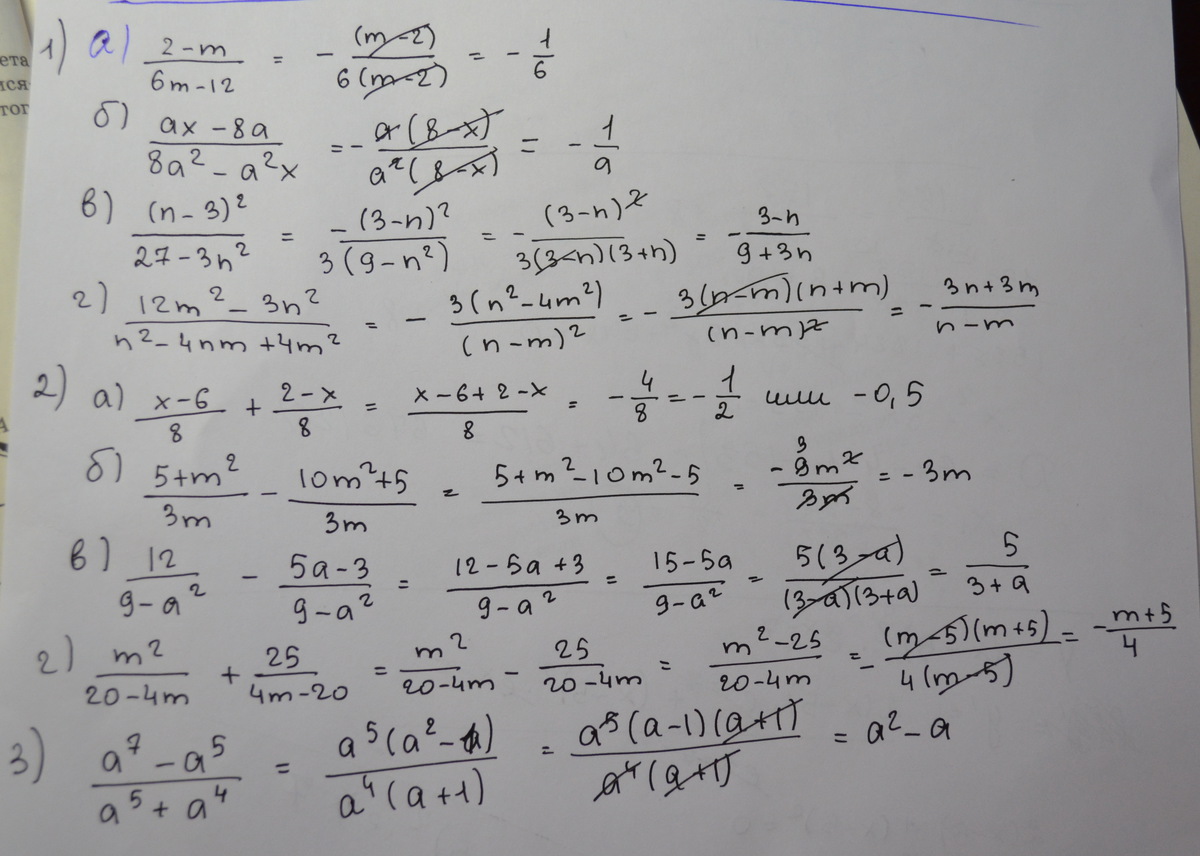 ета
ися
тог
1) а) (2-m)/(6m-12) = - (m-2)/(6(m-2)) = - 1/6
б) (ax-8a)/(8a² - a²x) = - (a(8-x))/(a²(8-x)) = - 1/a
в) (n-3)²/(27-3n²) = (-(3-n)²)/(3(9-n²)) = - (3-n)²/(3(3-n)(3+n)) = - (3-n)/(9+3n)
г) (12m² - 3n²)/(n²-4nm+4m²) = - (3(n²-4m²))/((n-m)²) = - (3(n-m)(n+m))/((n-m)²) = - (3n+3m)/(n-m)
2) а) (x-6)/8 + (2-x)/8 = (x-6+2-x)/8 = - 4/8 = - 1/2 или -0,5
б) (5+m²)/3m - (10m²+5)/3m = (5+m²-10m²-5)/3m = (-9m²)/3m = -3m
в) 12/(9-a²) - (5a-3)/(9-a²) = (12-5a+3)/(9-a²) = (15-5a)/(9-a²) = (5(3-a))/((3-a)(3+a)) = 5/(3+a)
г) m²/(20-4m) + 25/(4m-20) = m²/(20-4m) - 25/(20-4m) = (m²-25)/(20-4m) = - ((m-5)(m+5))/(4(m-5)) = - (m+5)/4
3) (a⁷-a⁵)/(a⁵+a⁴) = (a⁵(a²-1))/(a⁴(a+1)) = (a⁵(a-1)(a+1))/(a⁴(a+1)) = a²-a